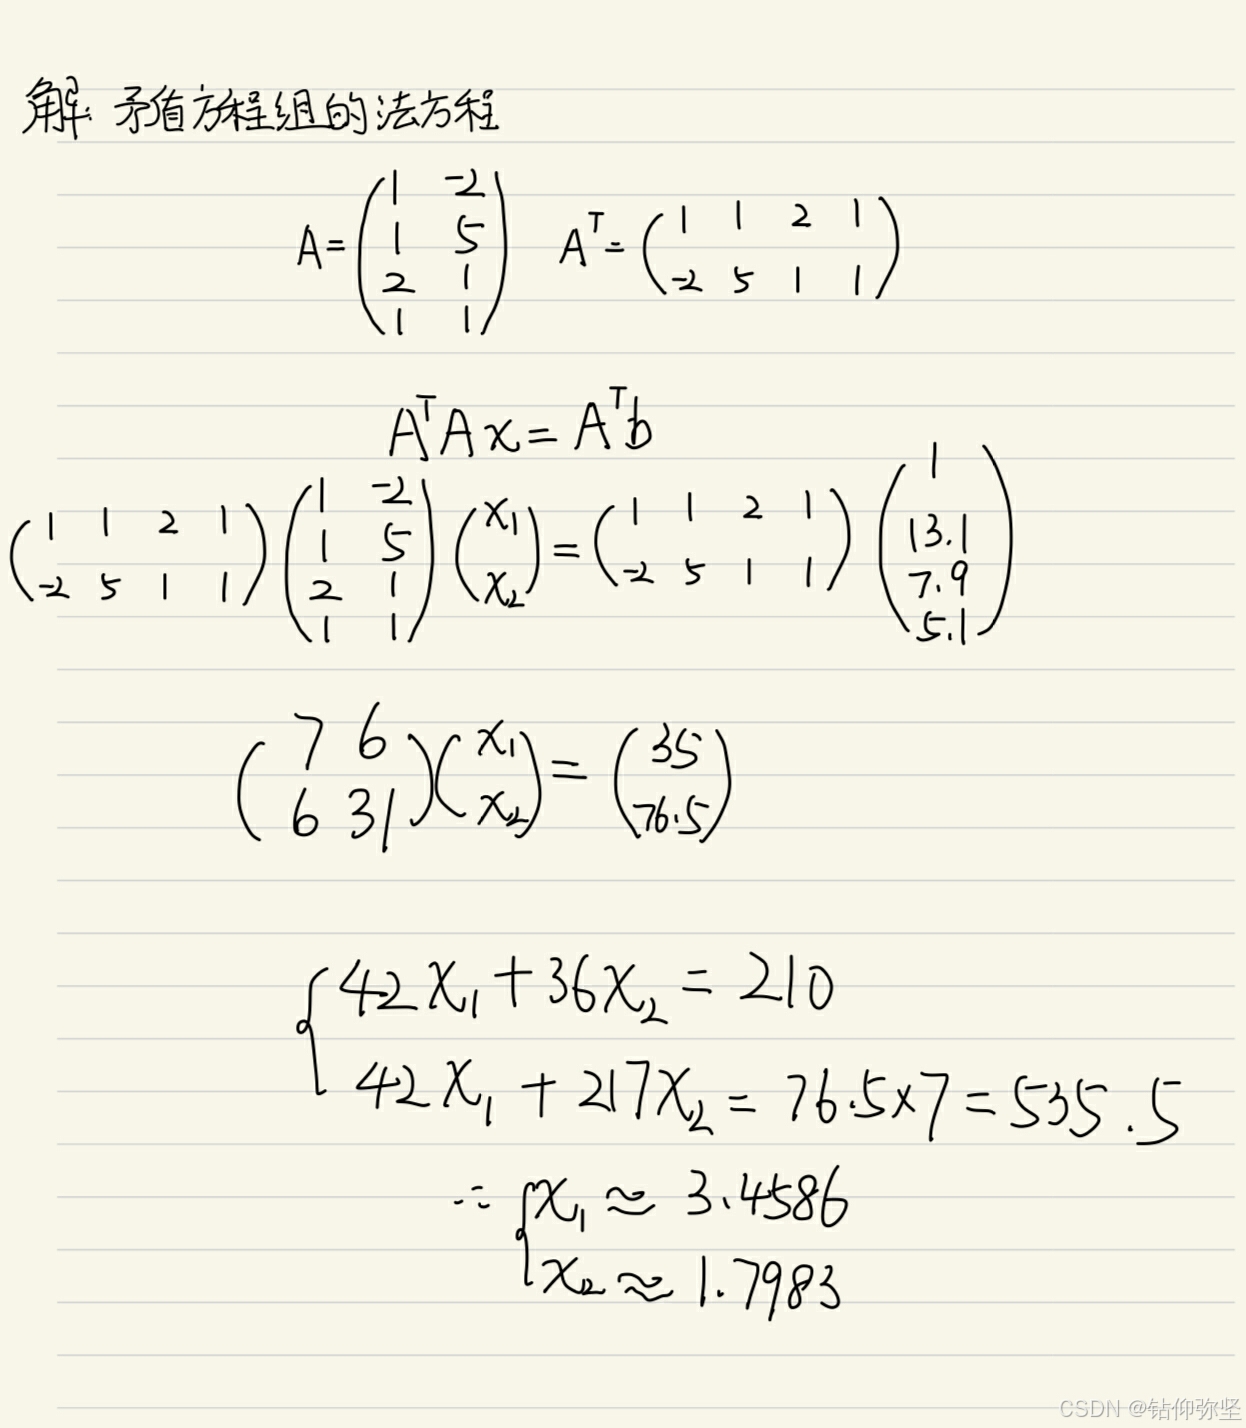 解: 矛盾方程组的法方程
A = \begin{pmatrix} 1 & -2 \\ 1 & 5 \\ 2 & 1 \\ 1 & 1 \end{pmatrix} A^T = \begin{pmatrix} 1 & 1 & 2 & 1 \\ -2 & 5 & 1 & 1 \end{pmatrix}
A^T A x = A^T b
\begin{pmatrix} 1 & 1 & 2 & 1 \\ -2 & 5 & 1 & 1 \end{pmatrix} \begin{pmatrix} 1 & -2 \\ 1 & 5 \\ 2 & 1 \\ 1 & 1 \end{pmatrix} \begin{pmatrix} x_1 \\ x_2 \end{pmatrix} = \begin{pmatrix} 1 & 1 & 2 & 1 \\ -2 & 5 & 1 & 1 \end{pmatrix} \begin{pmatrix} 1 \\ 13.1 \\ 7.9 \\ 5.1 \end{pmatrix}
\begin{pmatrix} 7 & 6 \\ 6 & 31 \end{pmatrix} \begin{pmatrix} x_1 \\ x_2 \end{pmatrix} = \begin{pmatrix} 35 \\ 76.5 \end{pmatrix}
{ 42x_1 + 36x_2 = 210
42x_1 + 217x_2 = 76.5×7 = 535.5
∴ { x_1 ≈ 3.4586
x_2 ≈ 1.7983
CSDN @钻仰弥坚